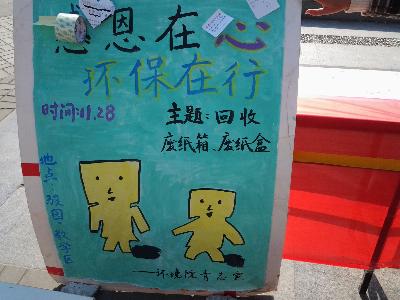 感恩在心
环保在行
时间:11.28
主题:回收
废纸箱、废纸盒
地点:牧园教学区
——环境院青志家